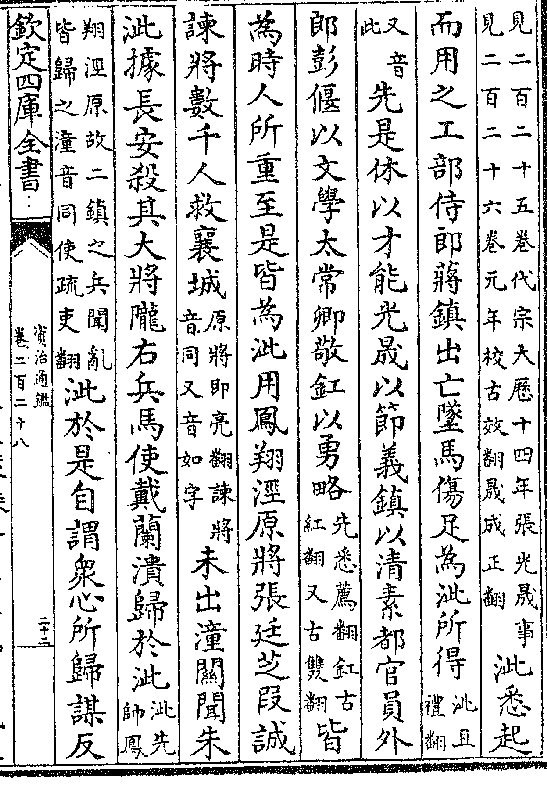 見二百二十五卷代宗大厯十四年張光晟事
見二百二十六卷元年校古效翻晟成正翻
泚悉起
而用之工部侍郎蔣鎮出亡墜馬傷足為泚所得
泚且
禮翻
又音
此
先是休以才能光晟以節義鎮以清素都官員外
郎彭偃以文學太常卿敬釭以勇略
先悉薦翻釭古
紅翻又古雙翻
皆
為時人所重至是皆為泚用鳳翔涇原將張廷芝段誠
諫將數千人救襄城
原將即亮翻諫將
音同又音如字
未出潼關聞朱
泚據長安殺其大將隴右兵馬使戴蘭潰歸於泚
泚先
帥鳳
翔涇原故二鎮之兵聞亂
皆歸之潼音同使疏吏翻
泚於是自謂衆心所歸謀反
欽定四庫全書
資治通鑑
卷二百二十八
二十二